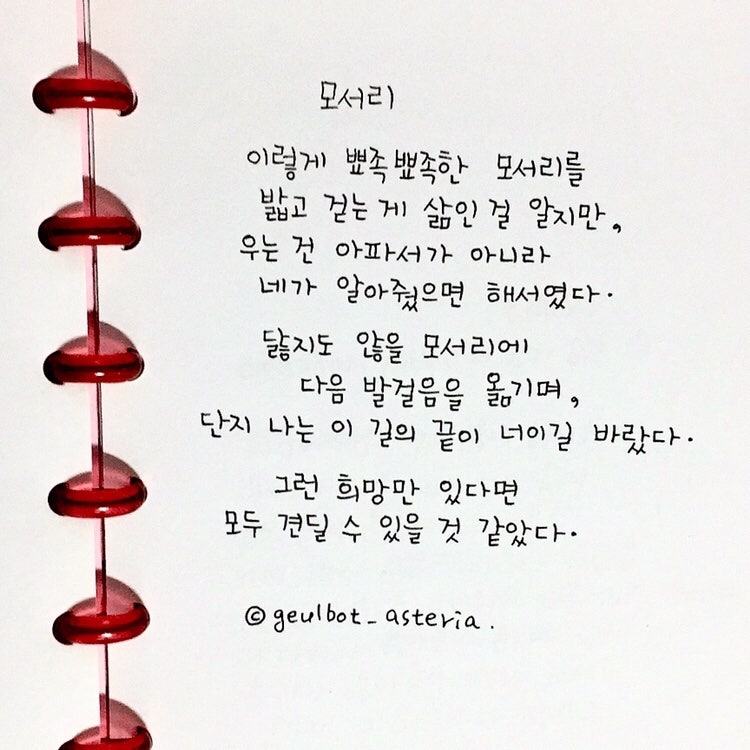 모서리
이렇게 뾰족뾰족한 모서리를
밟고 걷는 게 삶인 걸 알지만,
우는 건 아파서가 아니라
네가 알아줬으면 해서였다.
닳지도 않을 모서리에
다음 발걸음을 옮기며,
단지 나는 이 길의 끝이 너이길 바랐다.
그런 희망만 있다면
모두 견딜 수 있을 것 같았다.
© geulbot_asteria.